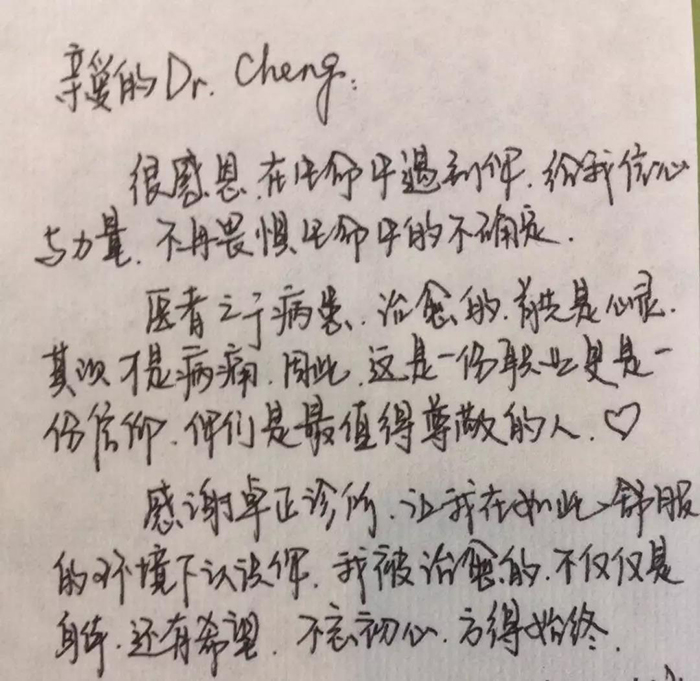 亲爱的Dr. Cheng:
很感恩,在生命中遇到你,给我信心
与力量,不再畏惧生命中的不确定.
医者之于病患,治愈的,首先是心灵.
其次才是病痛,因此,这是一份职业更是一
份信仰,你们是最值得尊敬的人.♡
感谢卓正诊所,让我在如此舒服
的环境下认识你,我被治愈的,不仅仅是
身体,还有希望.不忘初心,方得始终.